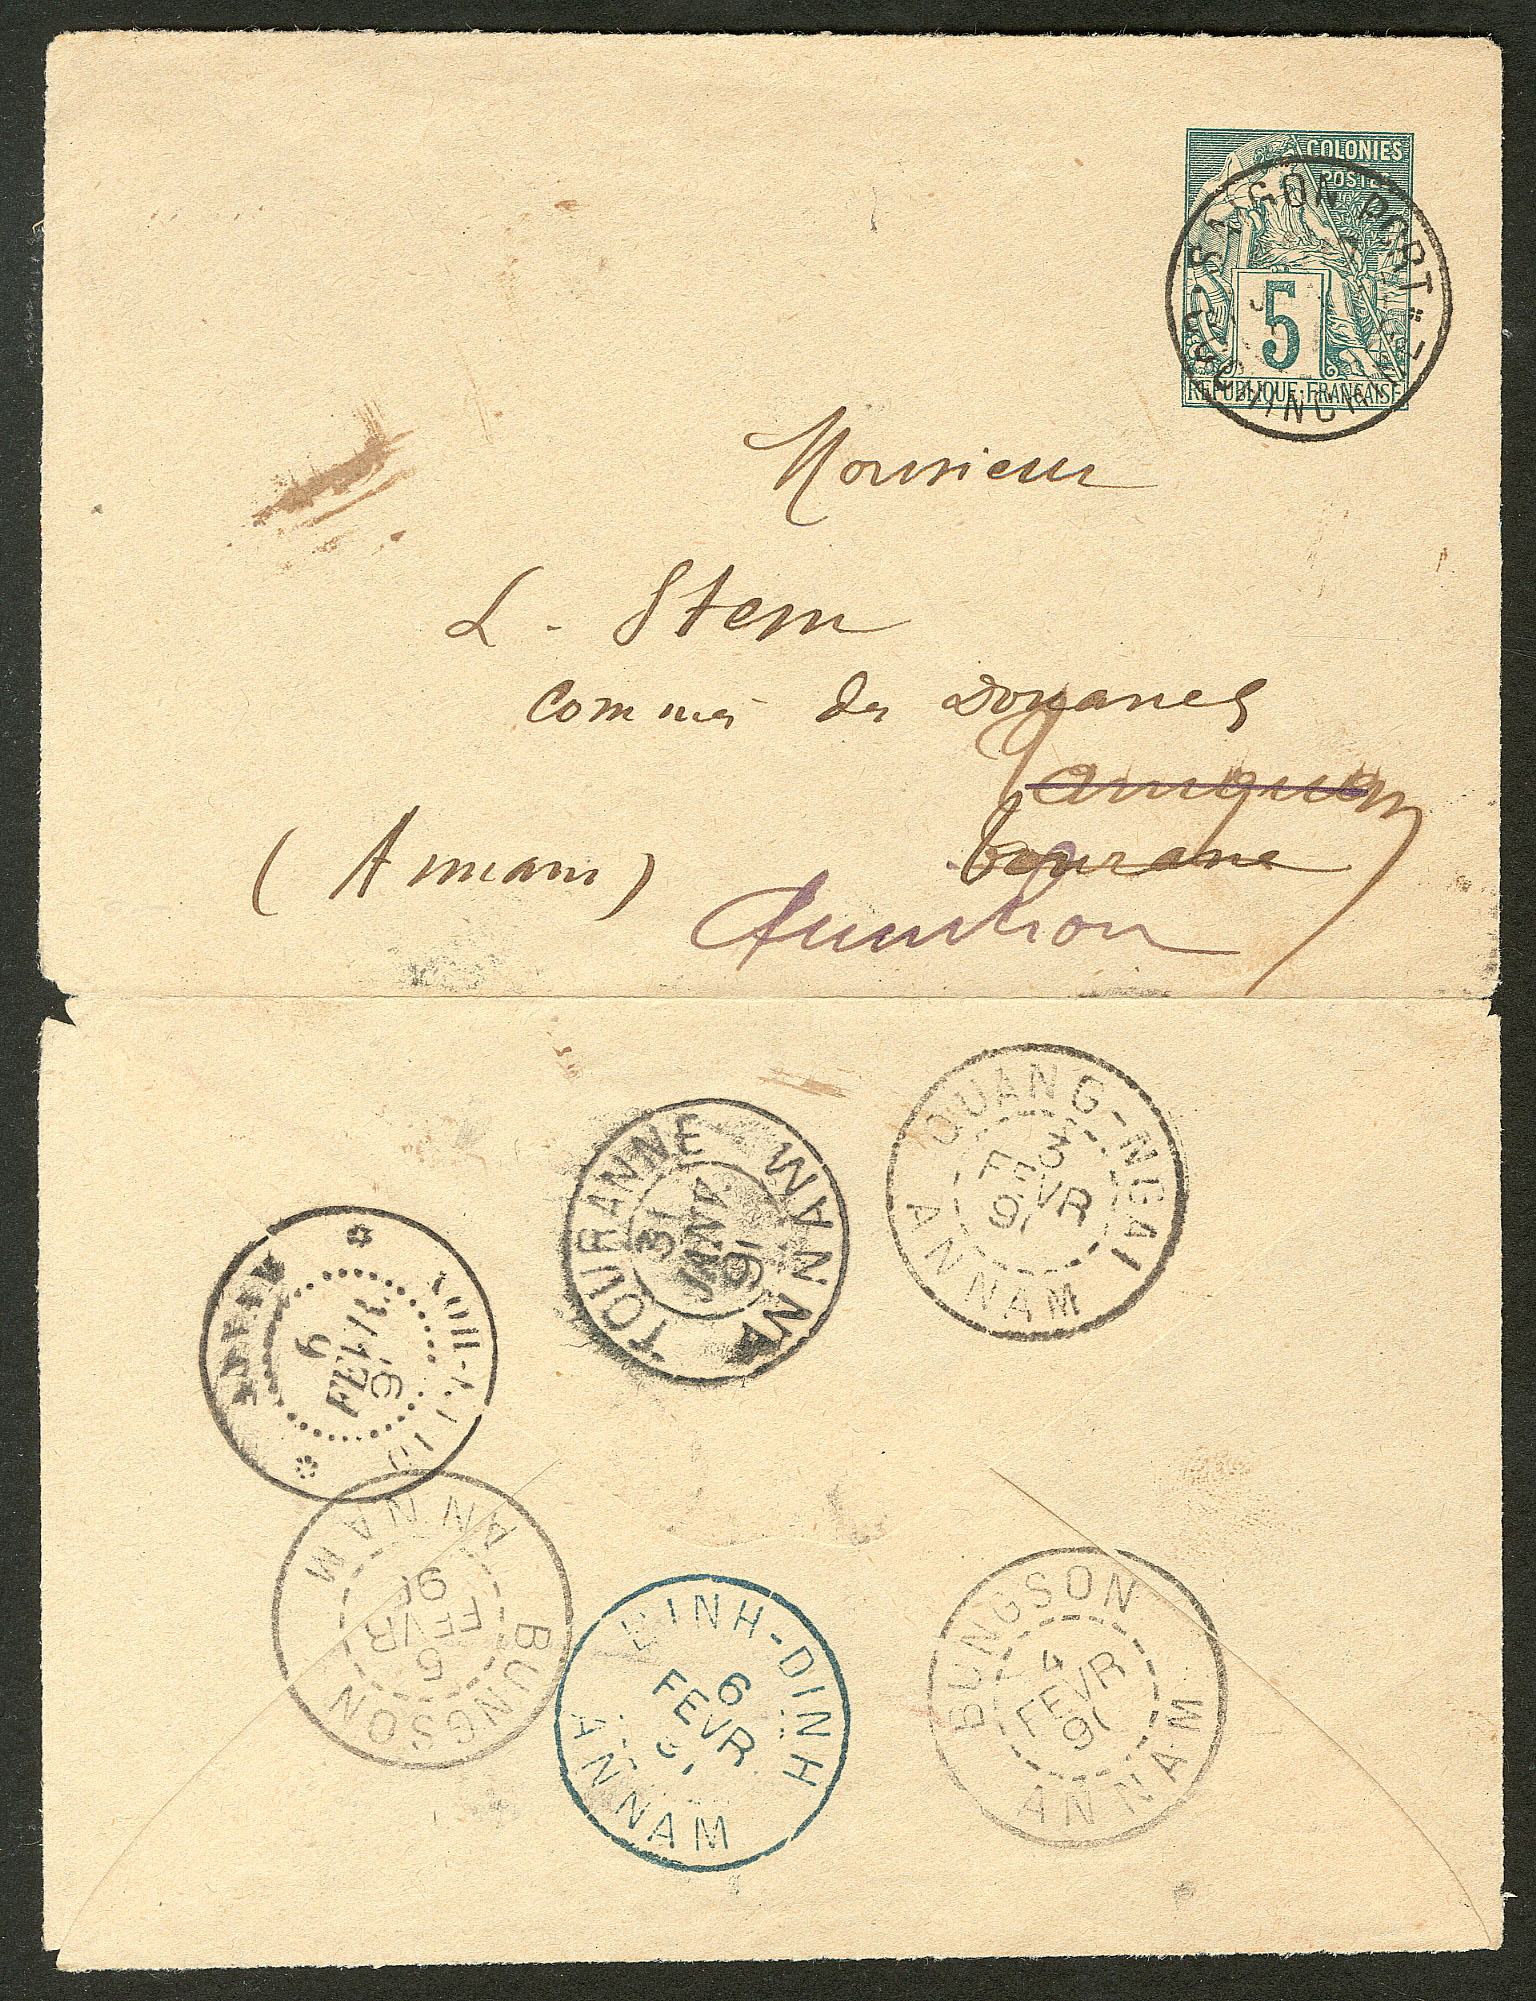 COLONIES
POSTES
SAIGON PORT
COCHINCHINE
5
REPUBLIQUE FRANCAISE
Monsieur
L. Stern
Commis des Douanes
Tourane
(Annam)
QUANG-NGAI
3
FEVR
91
ANNAM
TOURANNE
31
JANV.
91
ANNAM
6
FEVR.
91
BUNGSON
5
FEVR
91
ANNAM
BINH-DINH
6
FEVR
91
ANNAM
BUNGSON
4
FEVR
91
ANNAM